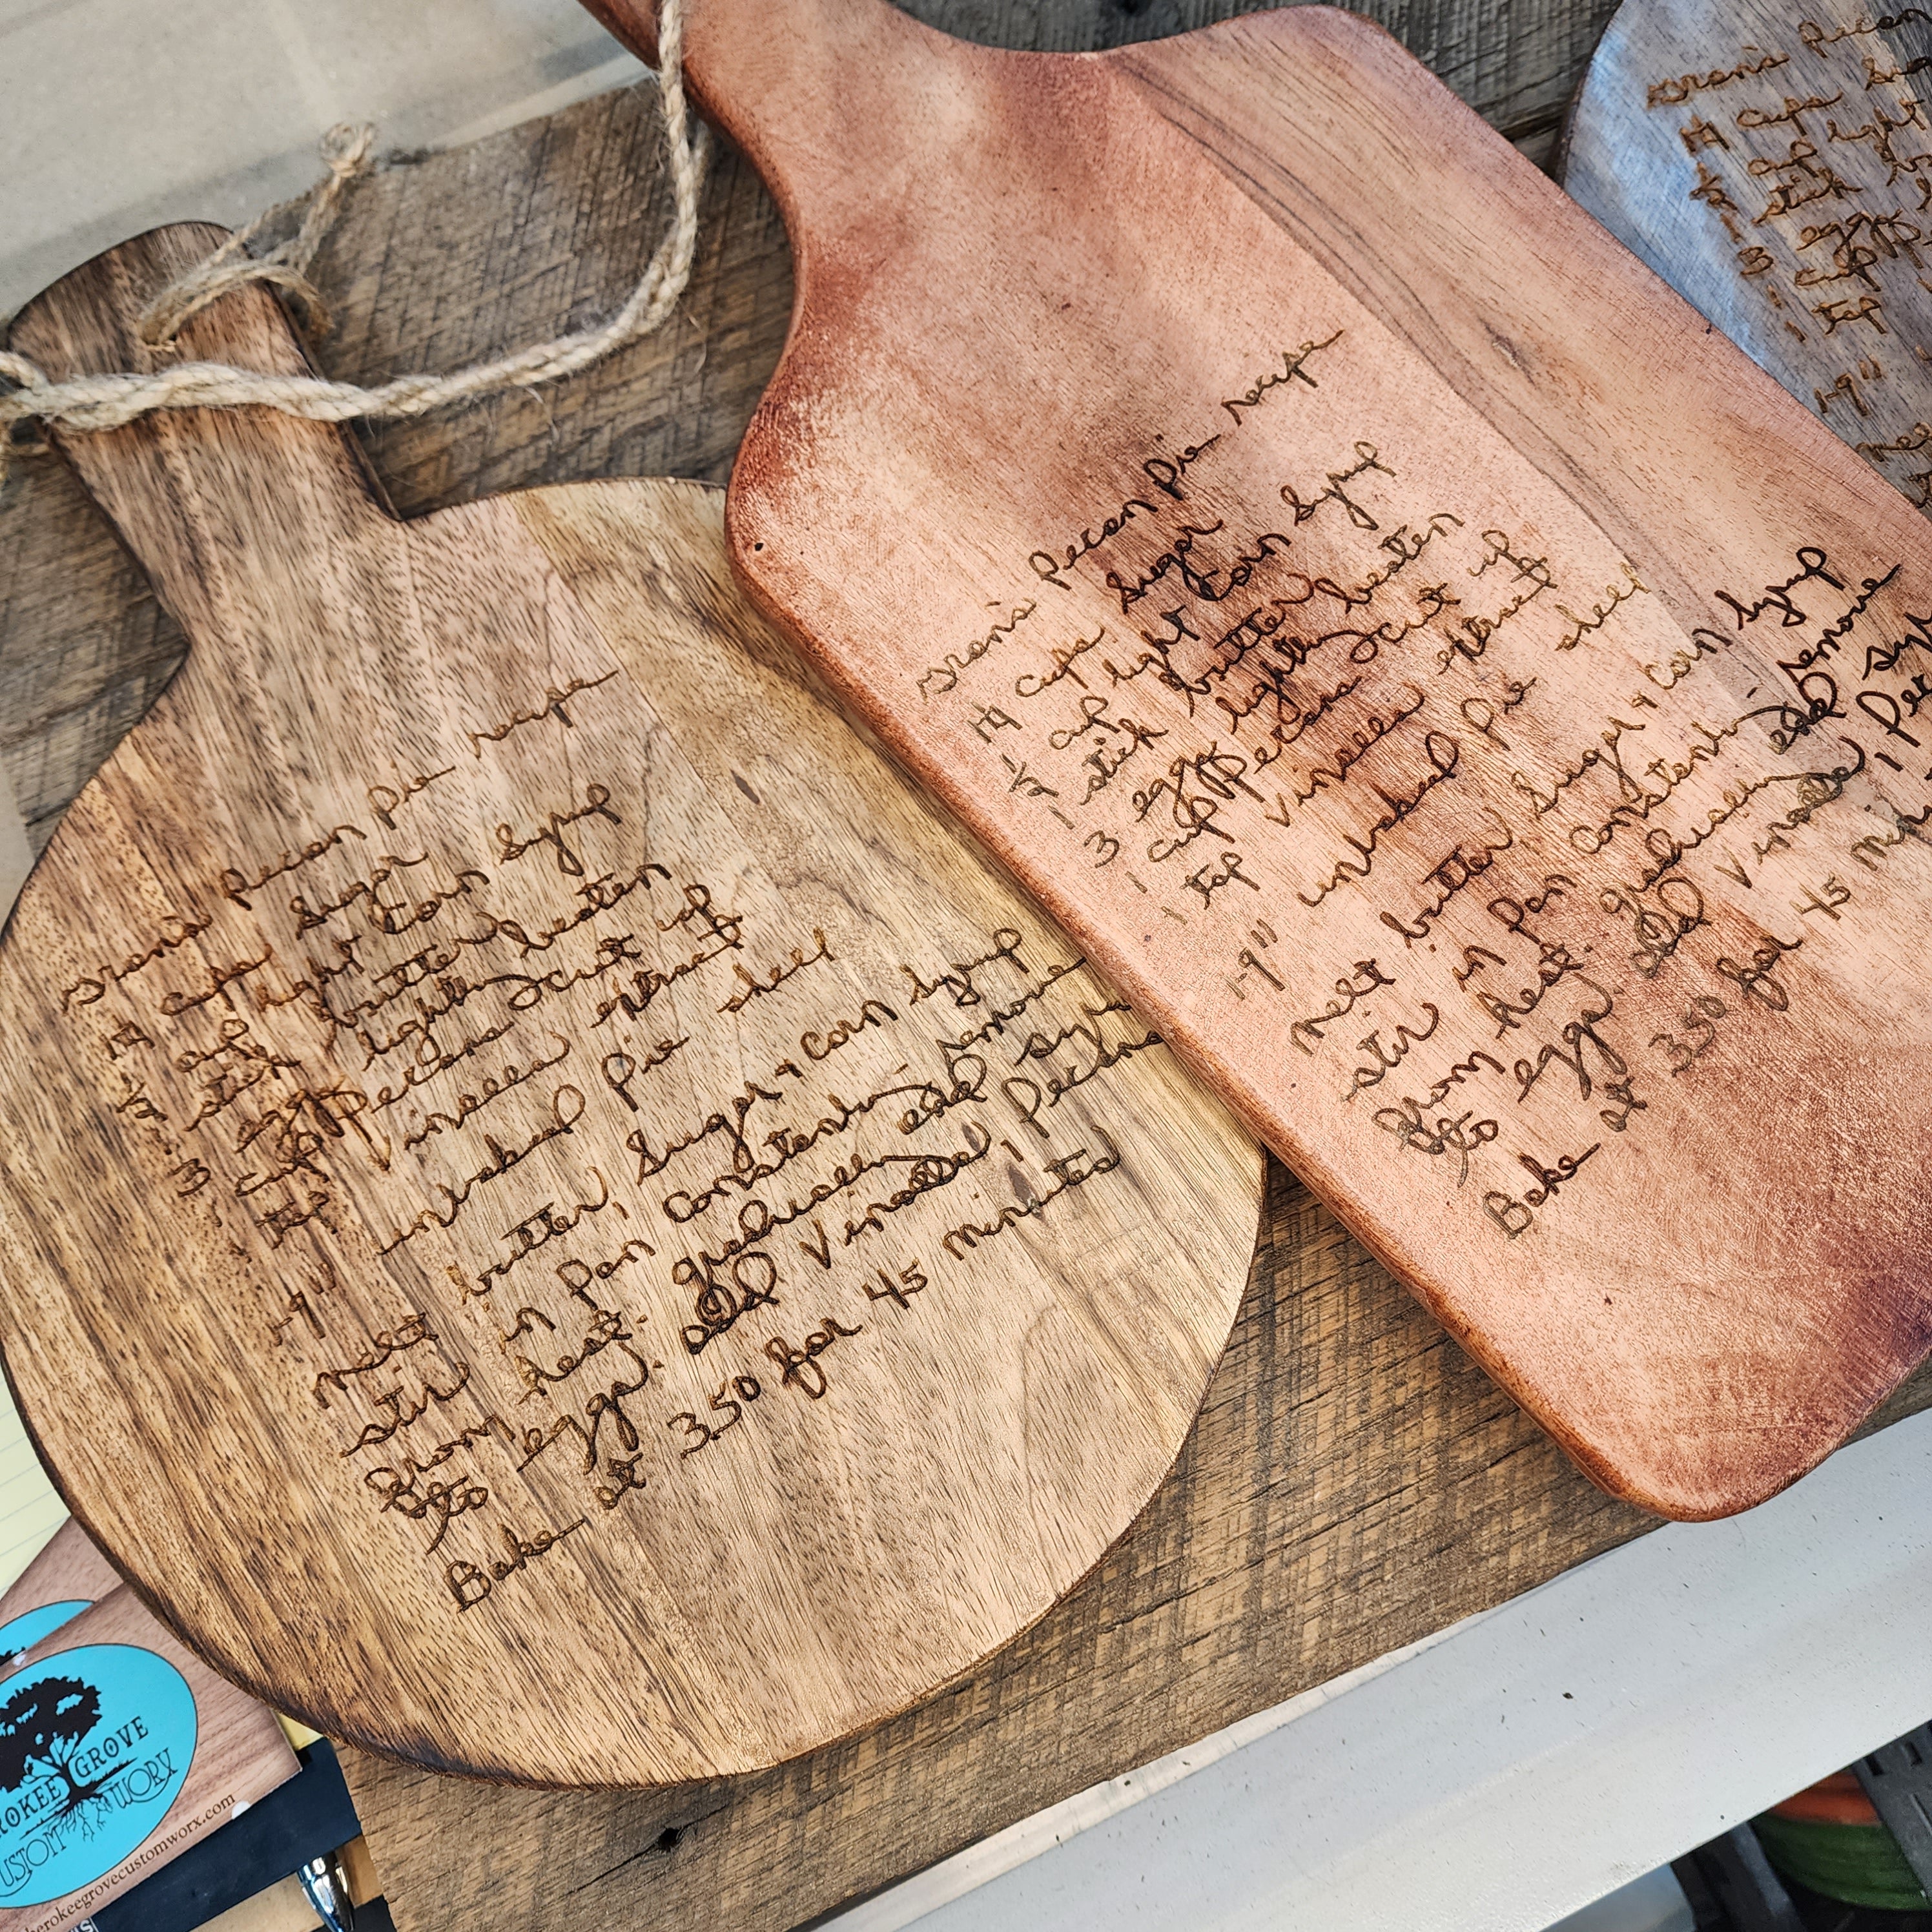 Gran's Pecan Pie recipe
1 1/4 cups Sugar
1/2 cup light Corn Syrup
1 stick butter
3 eggs lightly beaten
1 cup Pecans cut up
1 tsp Vinella extract
1-9" unbaked Pie sheel
Melt butter, Sugar & Corn Syrup
stir in Pan Constantly, remove
from heat. gradually add syrup
to eggs. add Vinella, Pecans
Bake at 350 for 45 minutes
Gran's Pecan Pie recipe
1 1/4 cups Sugar
1/2 cup light Corn Syrup
1 stick butter
3 eggs lightly beaten
1 cup Pecans cut up
1 tsp Vinella extract
1-9" unbaked Pie sheel
Melt butter, Sugar & Corn Syrup
stir in Pan Constantly, remove
from heat. gradually add
to eggs. add Vinella,
Bake at 350 for 45
Gran's Pecan
cups
cup light
stick
3 eggs
1 cup
1 tsp
1-9"
GROVE
WORX
herokeegrovecustomworx.com